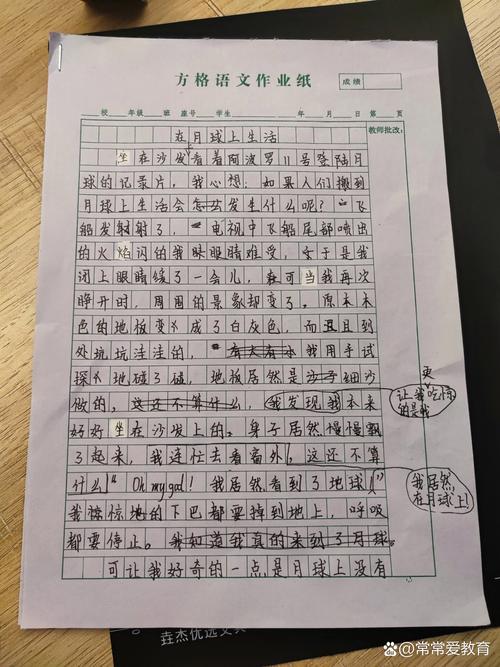 方格语文作业纸
成绩
校 年级 班 座号 学生 年 月 日 第 页
教师批改:
在月球上生活
坐在沙发看着阿波罗11号登陆月
球的记录片，我心想：如果人们搬到
月球上生活会怎么发生什么呢？“飞
船发射射了，”电视中飞船尾部喷出
的火焰闪的我眼眼睛难受，于于是我
闭上眼睛缓了一会儿，在可当我再次
睁开时，周围的景象却变了。原本本
色的地板变成了白灰色，而且且到
处坑坑洼洼的，我用手试
探地碰了碰，地板居然是沙子细沙
做的，这还不算什么，我发现我本来
更
让我吃惊
的是我
好好坐在沙发上的，身子居然慢慢飘
了起来，我连忙去看窗外，这还不算
什么“Oh my god！我居然看到了地球！”
我居然
在月球上！
我惊惊地的下巴都要掉到地上，呼吸
都要停止。我知道我真的来到了月球。
可让我好奇的一点是月球上没有
垚杰优选文具
常常爱教育